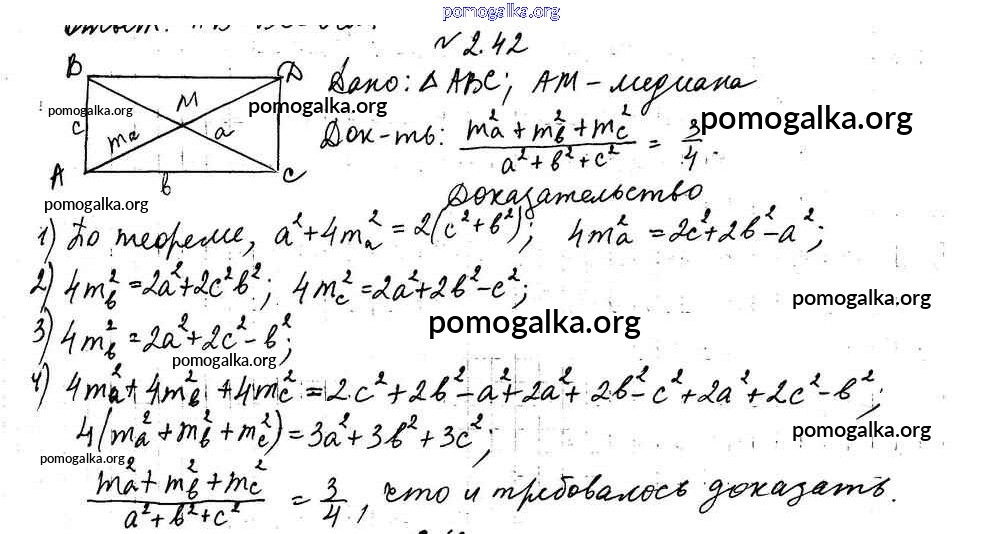 pomogalka.org
Ответ:
№ 2.42
B D
Дано: △ABC; AM - медиана
pomogalka.org
M
pomogalka.org
c mₐ a
Док-ть: (mₐ² + m_b² + m_c²)/(a² + b² + c²) = 3/4.
pomogalka.org
A b C
pomogalka.org
Доказательство
1) По теореме, a² + 4mₐ² = 2(c² + b²); 4mₐ² = 2c² + 2b² - a²;
2) 4m_b² = 2a² + 2c² b²; 4m_c² = 2a² + 2b² - c²;
pomogalka.org
pomogalka.org
3) 4m_b² = 2a² + 2c² - b²;
pomogalka.org
4) 4mₐ² + 4m_b² + 4m_c² = 2c² + 2b² - a² + 2a² + 2b² - c² + 2a² + 2c² - b²;
4(mₐ² + m_b² + m_c²) = 3a² + 3b² + 3c²;
pomogalka.org
pomogalka.org
(mₐ² + m_b² + m_c²)/(a² + b² + c²) = 3/4, что и требовалось доказать.